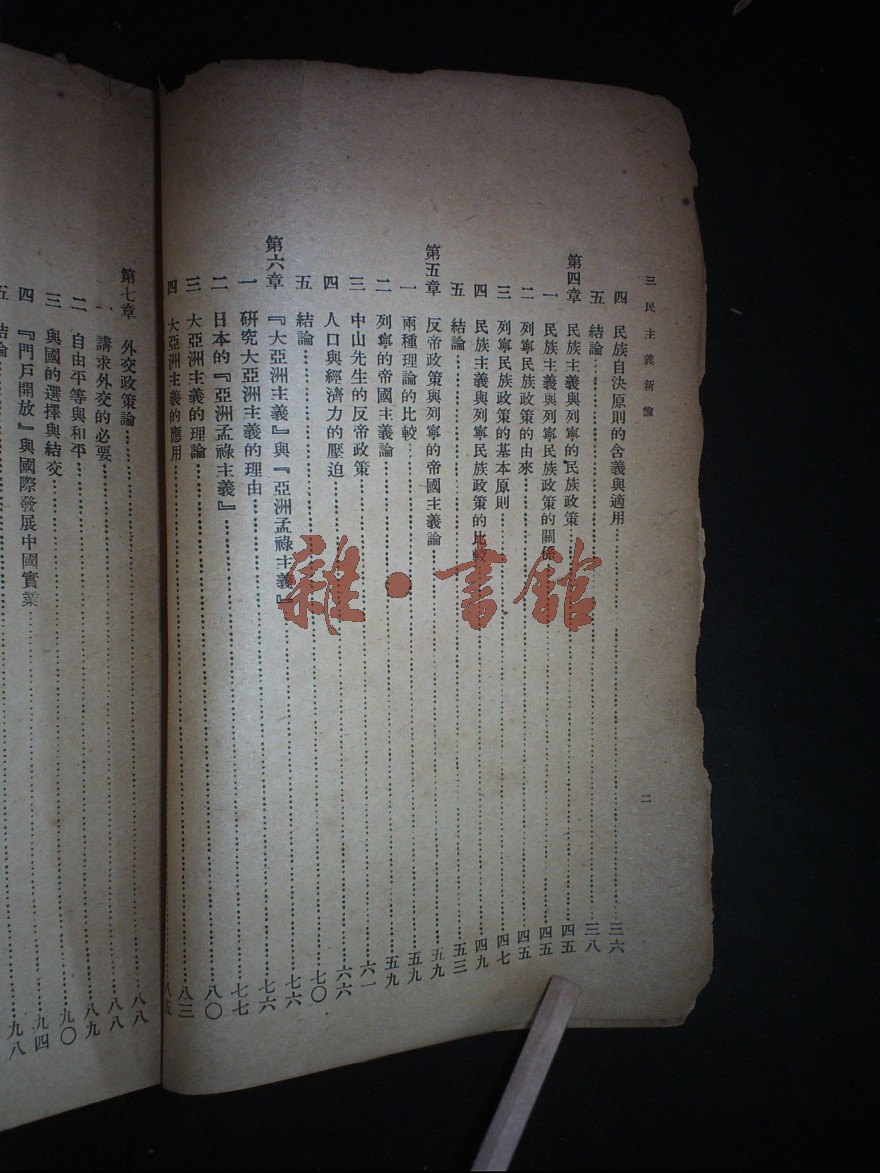 三民主義新論
二
四 民族自決原則的含義與適用……三六
五 結論……三八
第四章 民族主義與列寧的民族政策……四五
一 民族主義與列寧民族政策的關係……四五
二 列寧民族政策的由來……四五
三 列寧民族政策的基本原則……四七
四 民族主義與列寧民族政策的比較……四九
五 結論……五三
第五章 反帝政策與列寧的帝國主義論……五九
一 兩種理論的比較……五九
二 列寧的帝國主義論……五九
三 中山先生的反帝政策……六一
四 人口與經濟力的壓迫……六六
五 結論……七〇
第六章 『大亞洲主義』與『亞洲孟祿主義』……七六
一 研究大亞洲主義的理由……七六
二 日本的『亞洲孟祿主義』……七七
三 大亞洲主義的理論……八〇
四 大亞洲主義的應用……八三
八五
第七章 外交政策論……八八
一 講求外交的必要……八八
二 自由平等與和平……八九
三 與國的選擇與結交……九〇
四 『門戶開放』與國際發展中國實業……九四
五 結論……九八
雜·書館